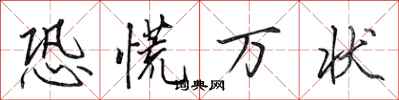 恐慌万状
词典网